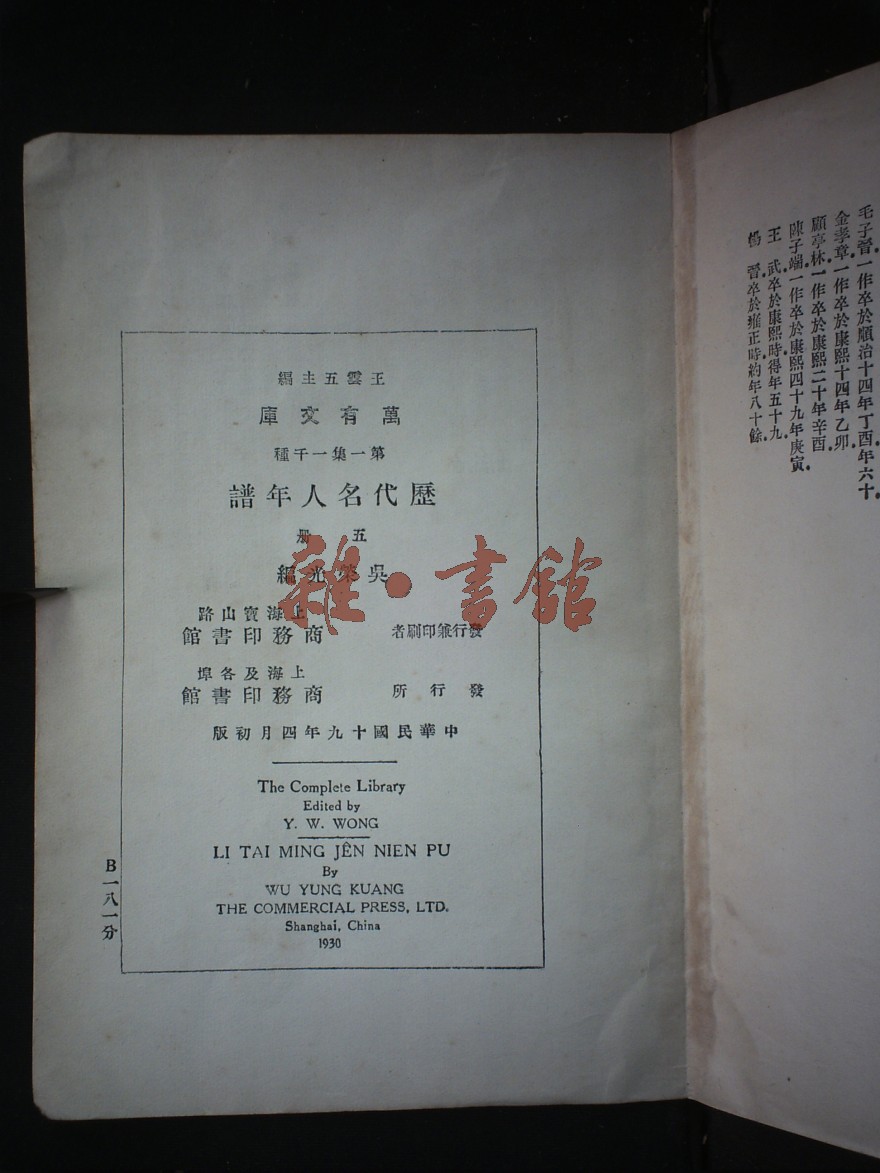 毛子晉一作卒於順治十四年丁酉年六十
金孝章一作卒於康熙十四年乙卯
顧亭林一作卒於康熙二十年辛酉
陳子端一作卒於康熙四十九年庚寅
王　武卒於康熙時得年五十九
楊　晉卒於雍正時約年八十餘
王雲五主編
萬有文庫
第一集一千種
歷代名人年譜
五册
吳榮光編
發行兼印刷者
上海寶山路
商務印書館
發行所
上海及各埠
商務印書館
中華民國十九年四月初版
The Complete Library
Edited by
Y. W. WONG
LI TAI MING JÊN NIEN PU
By
WU YUNG KUANG
THE COMMERCIAL PRESS, LTD.
Shanghai, China
1930
B一八一分
雜·書館